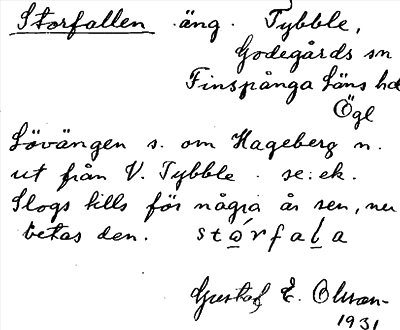 Storfallen äng. Tybble,
Godegårds sn
Finspånga läns hd
Ögl
Lövängen s. om Hageberg n.
ut från V. Tybble. se: ek.
Slogs tills för några år sen, nu
betas den. sto̲ŕfal̲a
Gustaf E. Olsson
1931